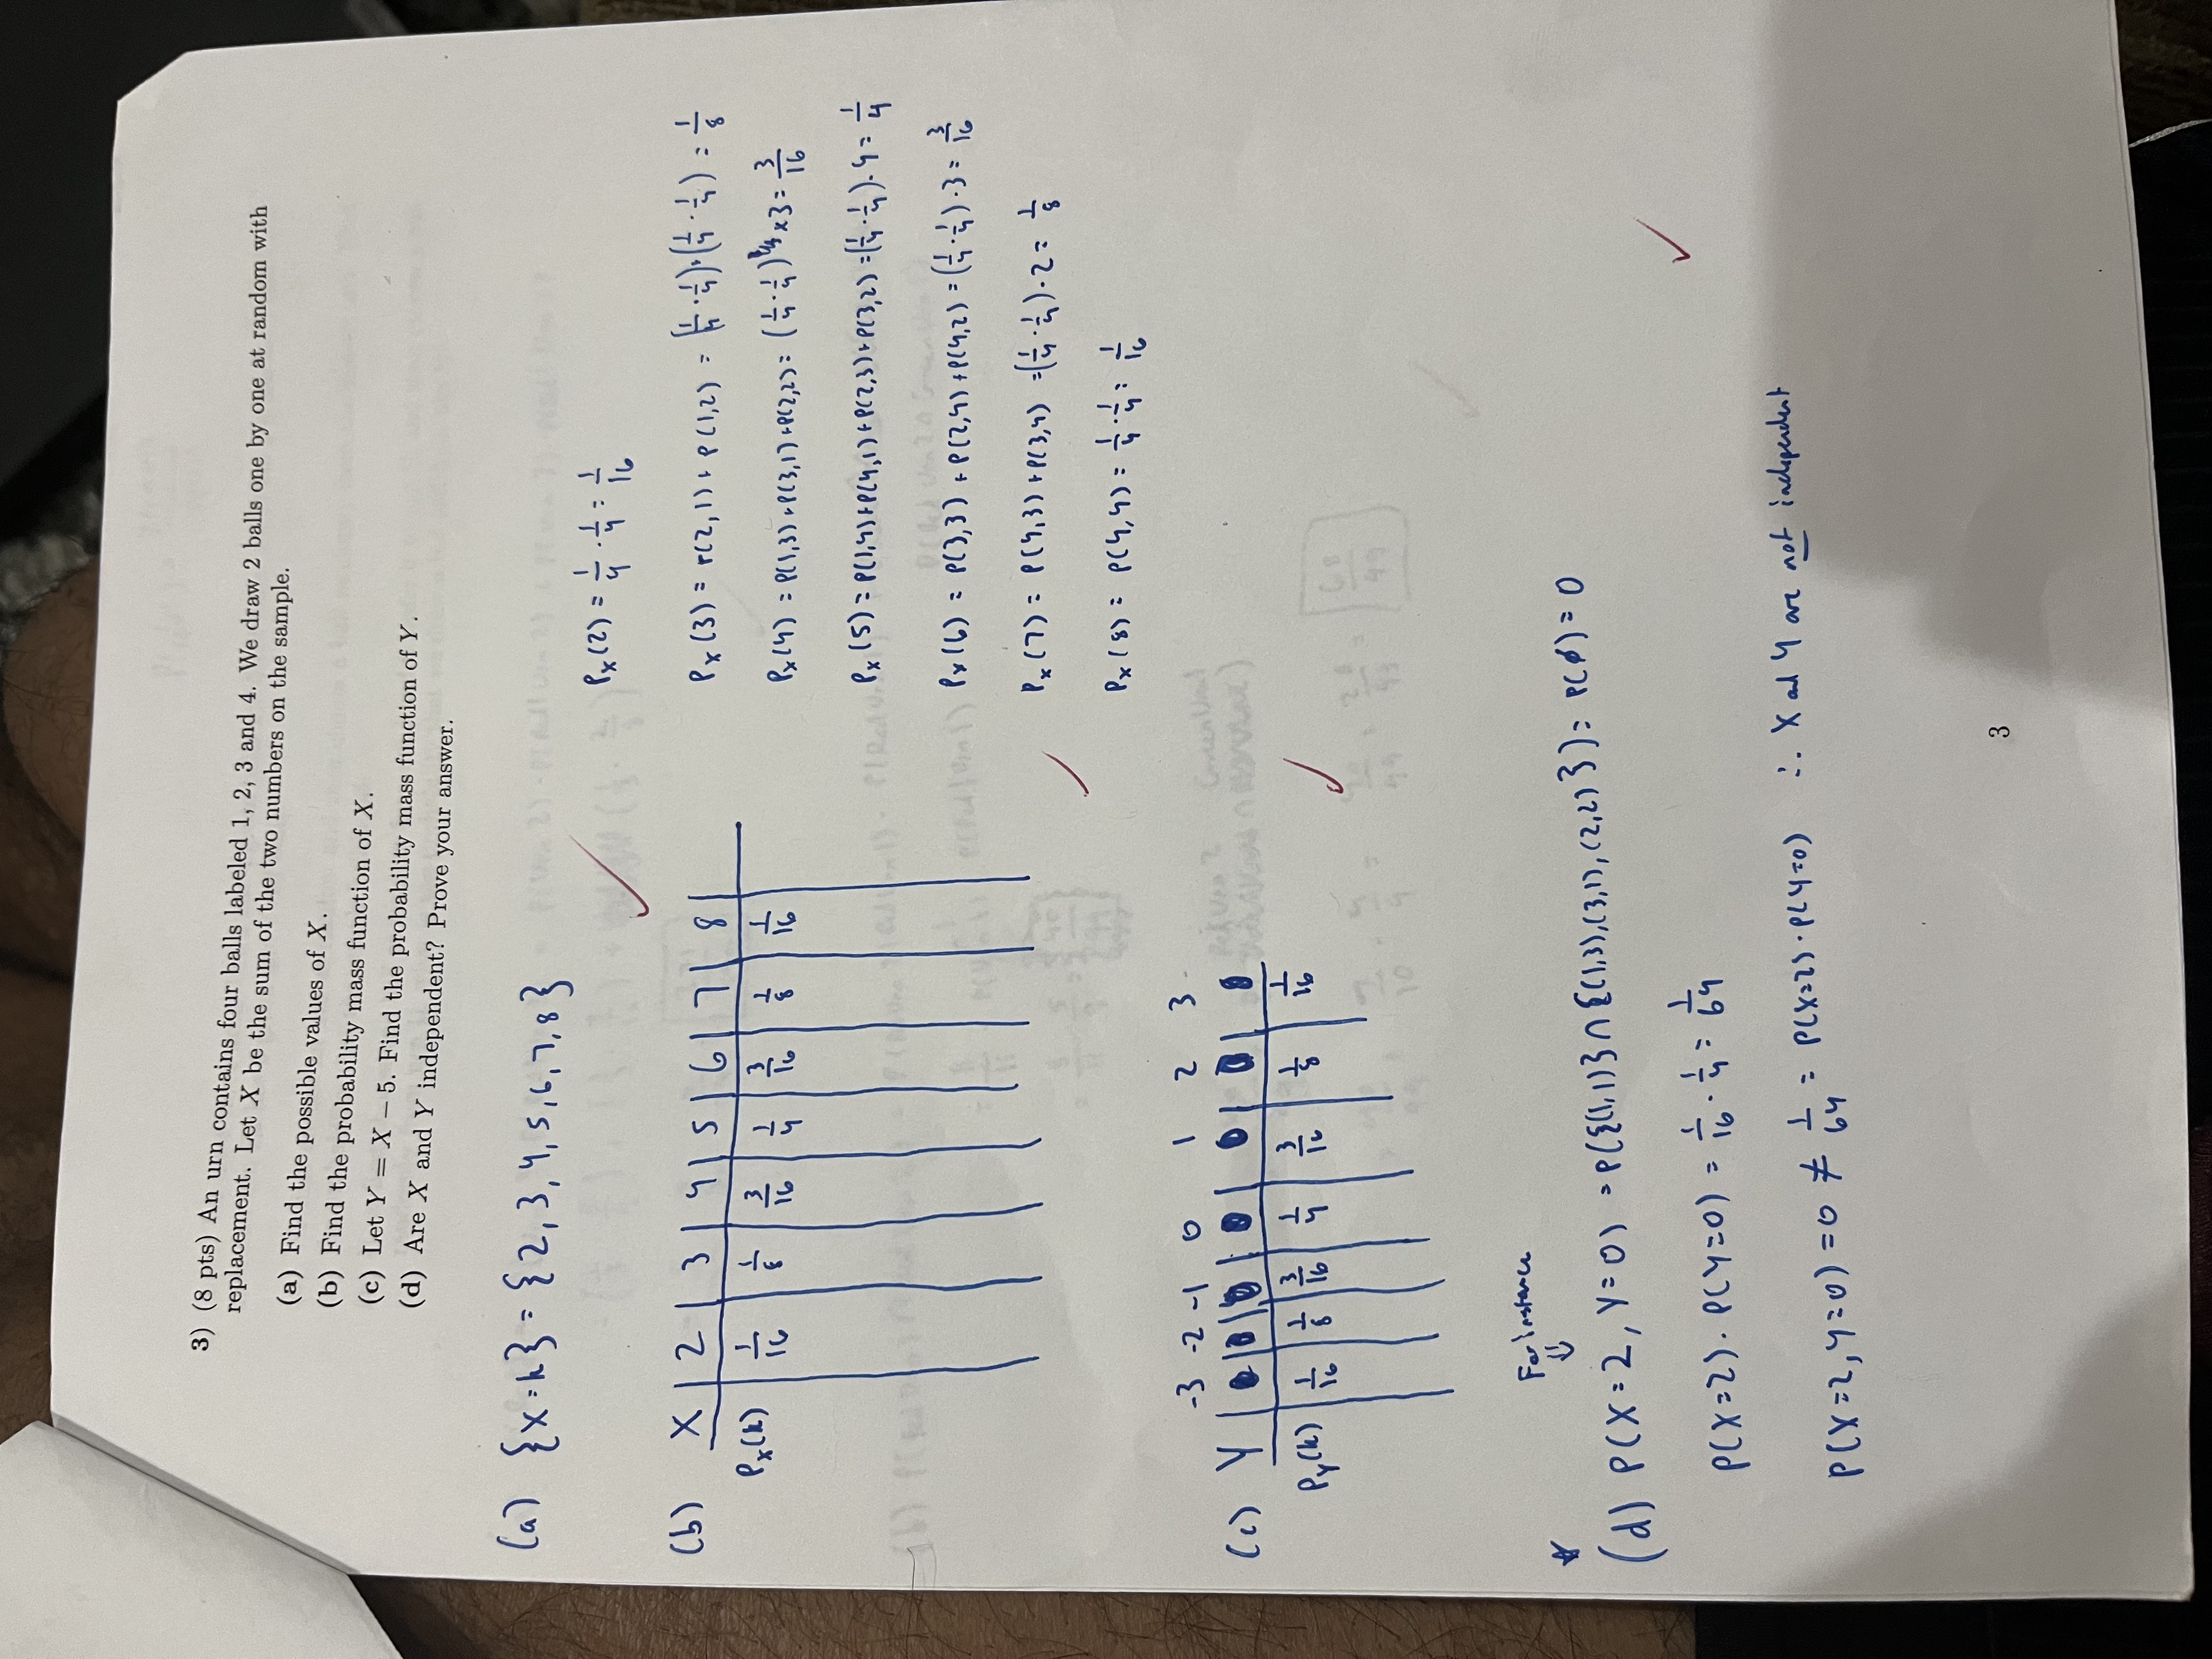 3) (8 pts) An urn contains four balls labeled 1, 2, 3 and 4. We draw 2 balls one by one at random with
replacement. Let X be the sum of the two numbers on the sample.
(a) Find the possible values of X.
(b) Find the probability mass function of X.
(c) Let Y = X − 5. Find the probability mass function of Y.
(d) Are X and Y independent? Prove your answer.
(a) {X=k} = {2, 3, 4, 5, 6, 7, 8}
(b) X | 2 | 3 | 4 | 5 | 6 | 7 | 8 |
Px(k) 1/16 | 1/8 | 3/16 | 1/4 | 3/16 | 1/8 | 1/16
Px(2) = 1/4 · 1/4 = 1/16
Px(3) = P(2,1) + P(1,2) = (1/4 · 1/4) + (1/4 · 1/4) = 1/8
Px(4) = P(1,3) + P(3,1) + P(2,2) = (1/4 · 1/4) x3 = 3/16
Px(5) = P(1,4) + P(4,1) + P(2,3) + P(3,2) = (1/4 · 1/4) · 4 = 1/4
Px(6) = P(3,3) + P(2,4) + P(4,2) = (1/4 · 1/4) · 3 = 3/16
Px(7) = P(4,3) + P(3,4) = (1/4 · 1/4) · 2 = 1/8
Px(8) = P(4,4) = 1/4 · 1/4 = 1/16
-3 -2 -1 0 1 2 3
(c) Y
Py(k) 1/16 | 1/8 | 3/16 | 1/4 | 3/16 | 1/8 | 1/16
For instance
⇓
(d) P(X=2, Y=0) = P({(1,1)} ∩ {(1,3),(3,1),(2,2)}) = P(∅) = 0
P(X=2) · P(Y=0) = 1/16 · 1/4 = 1/64
P(X=2, Y=0) = 0 ≠ 1/64 = P(X=2) · P(Y=0) ∴ X and Y are not independent
3